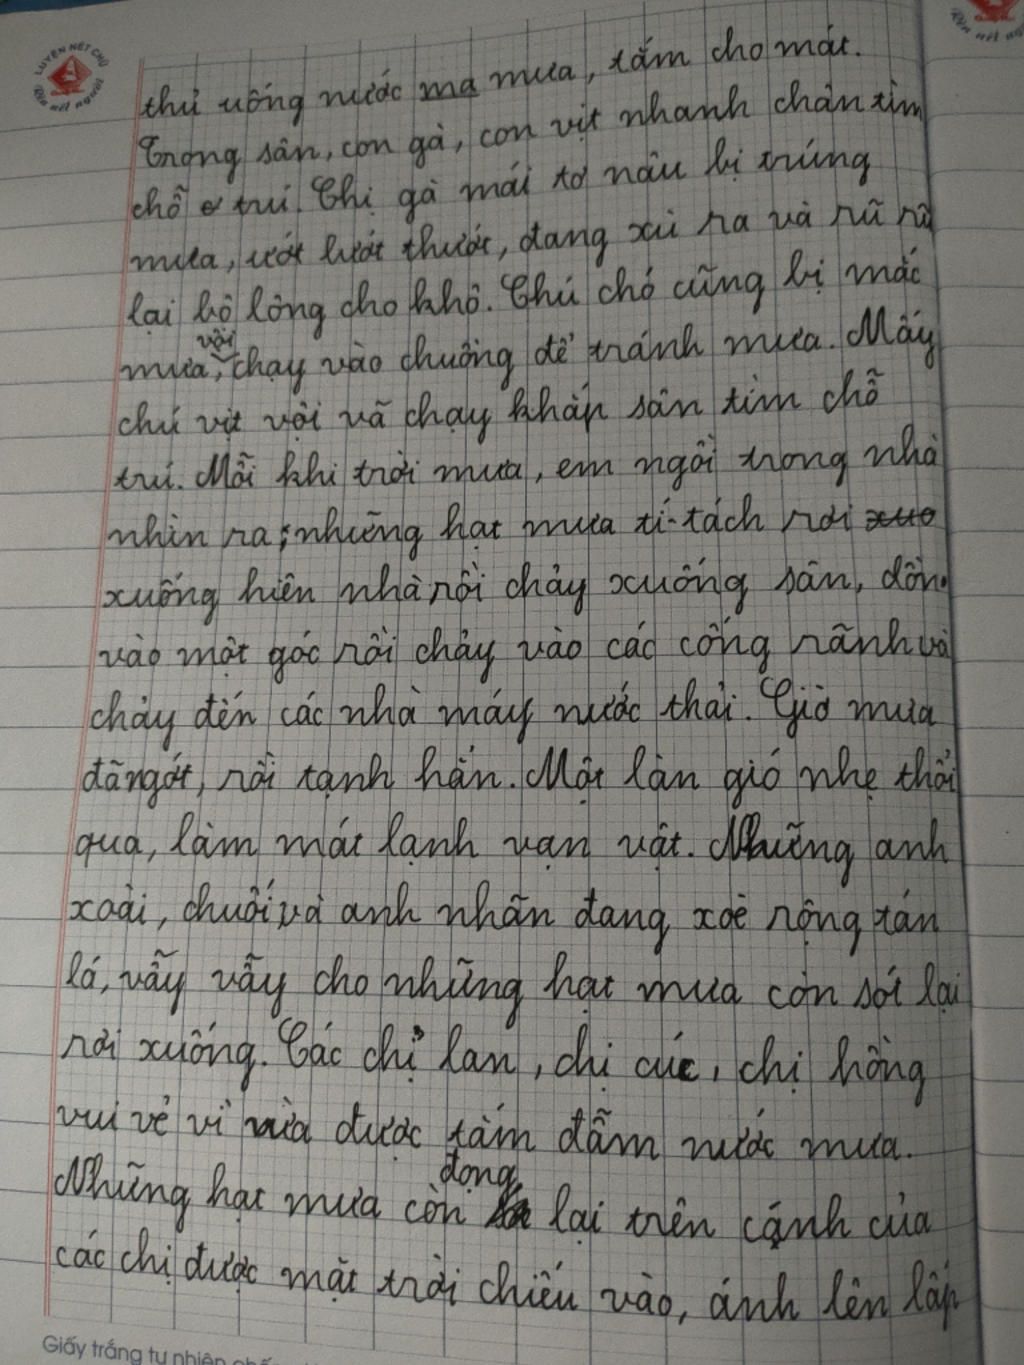 LUYỆN NÉT CHỮ
Rèn nết người
Rèn nết người
thủ uống nước ma mưa, tắm cho mát.
Trong sân, con gà, con vịt nhanh chân tìm
chỗ trú. Chị gà mái tơ nâu bị trúng
mưa, ướt lướt thướt, đang xù ra và rũ rũ
lại bộ lông cho khô. Chú chó cũng bị mắc
mưa, vội chạy vào chuồng để tránh mưa. Mấy
chú vịt vội vã chạy khắp sân tìm chỗ
trú. Mỗi khi trời mưa, em ngồi trong nhà
nhìn ra, những hạt mưa tí-tách rơi xuo
xuống hiên nhà rồi chảy xuống sân, dồn
vào một góc rồi chảy vào các cống rãnh và
chảy đến các nhà máy nước thải. Giờ mưa
đã ngớt, rồi tạnh hẳn. Một làn gió nhẹ thổi
qua, làm mát lạnh vạn vật. Những anh
xoài, chuối và anh nhãn đang xoè rộng tán
lá, vẫy vẫy cho những hạt mưa còn sót lại
rơi xuống. Các chị lan, chị cúc, chị hồng
vui vẻ vì vừa được tắm đẫm nước mưa.
Những hạt mưa còn đọng lại trên cánh của
các chị được mặt trời chiếu vào, ánh lên lấp
Giấy trắng tự nhiên